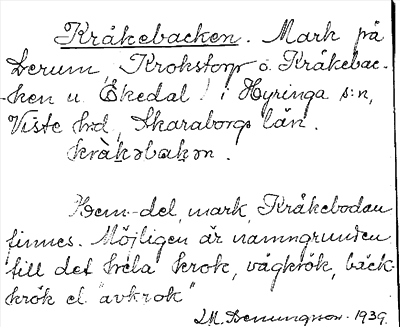 Kråkebacken. Mark på
Derum, Krokstorp o. Kråkebac-
ken u. Ekedal! i Hyringa s:n,
Viste hrd, Skaraborgs län.
kràkəbakən.
Hem-del, mark, Kråkebodan
finnes. Möjligen är namngrunden
till det hela krok, vägkrök, bäck-
krök el "avkrok"
1939.